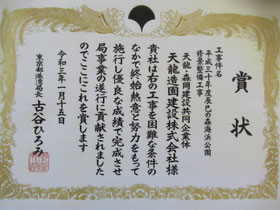 賞状
工事件名
平成三十年度辰巳の森海浜公園
修景整備工事
天龍・森岡建設共同企業体
天龍造園建設株式会社様
貴社は右の工事を困難な条件の
なかで終始熱意と努力をもって
施行し優良な成績で完成させ
局事業の遂行に貢献されました
のでここにこれを賞します
令和三年一月十五日
東京都港湾局長
古谷ひろみ